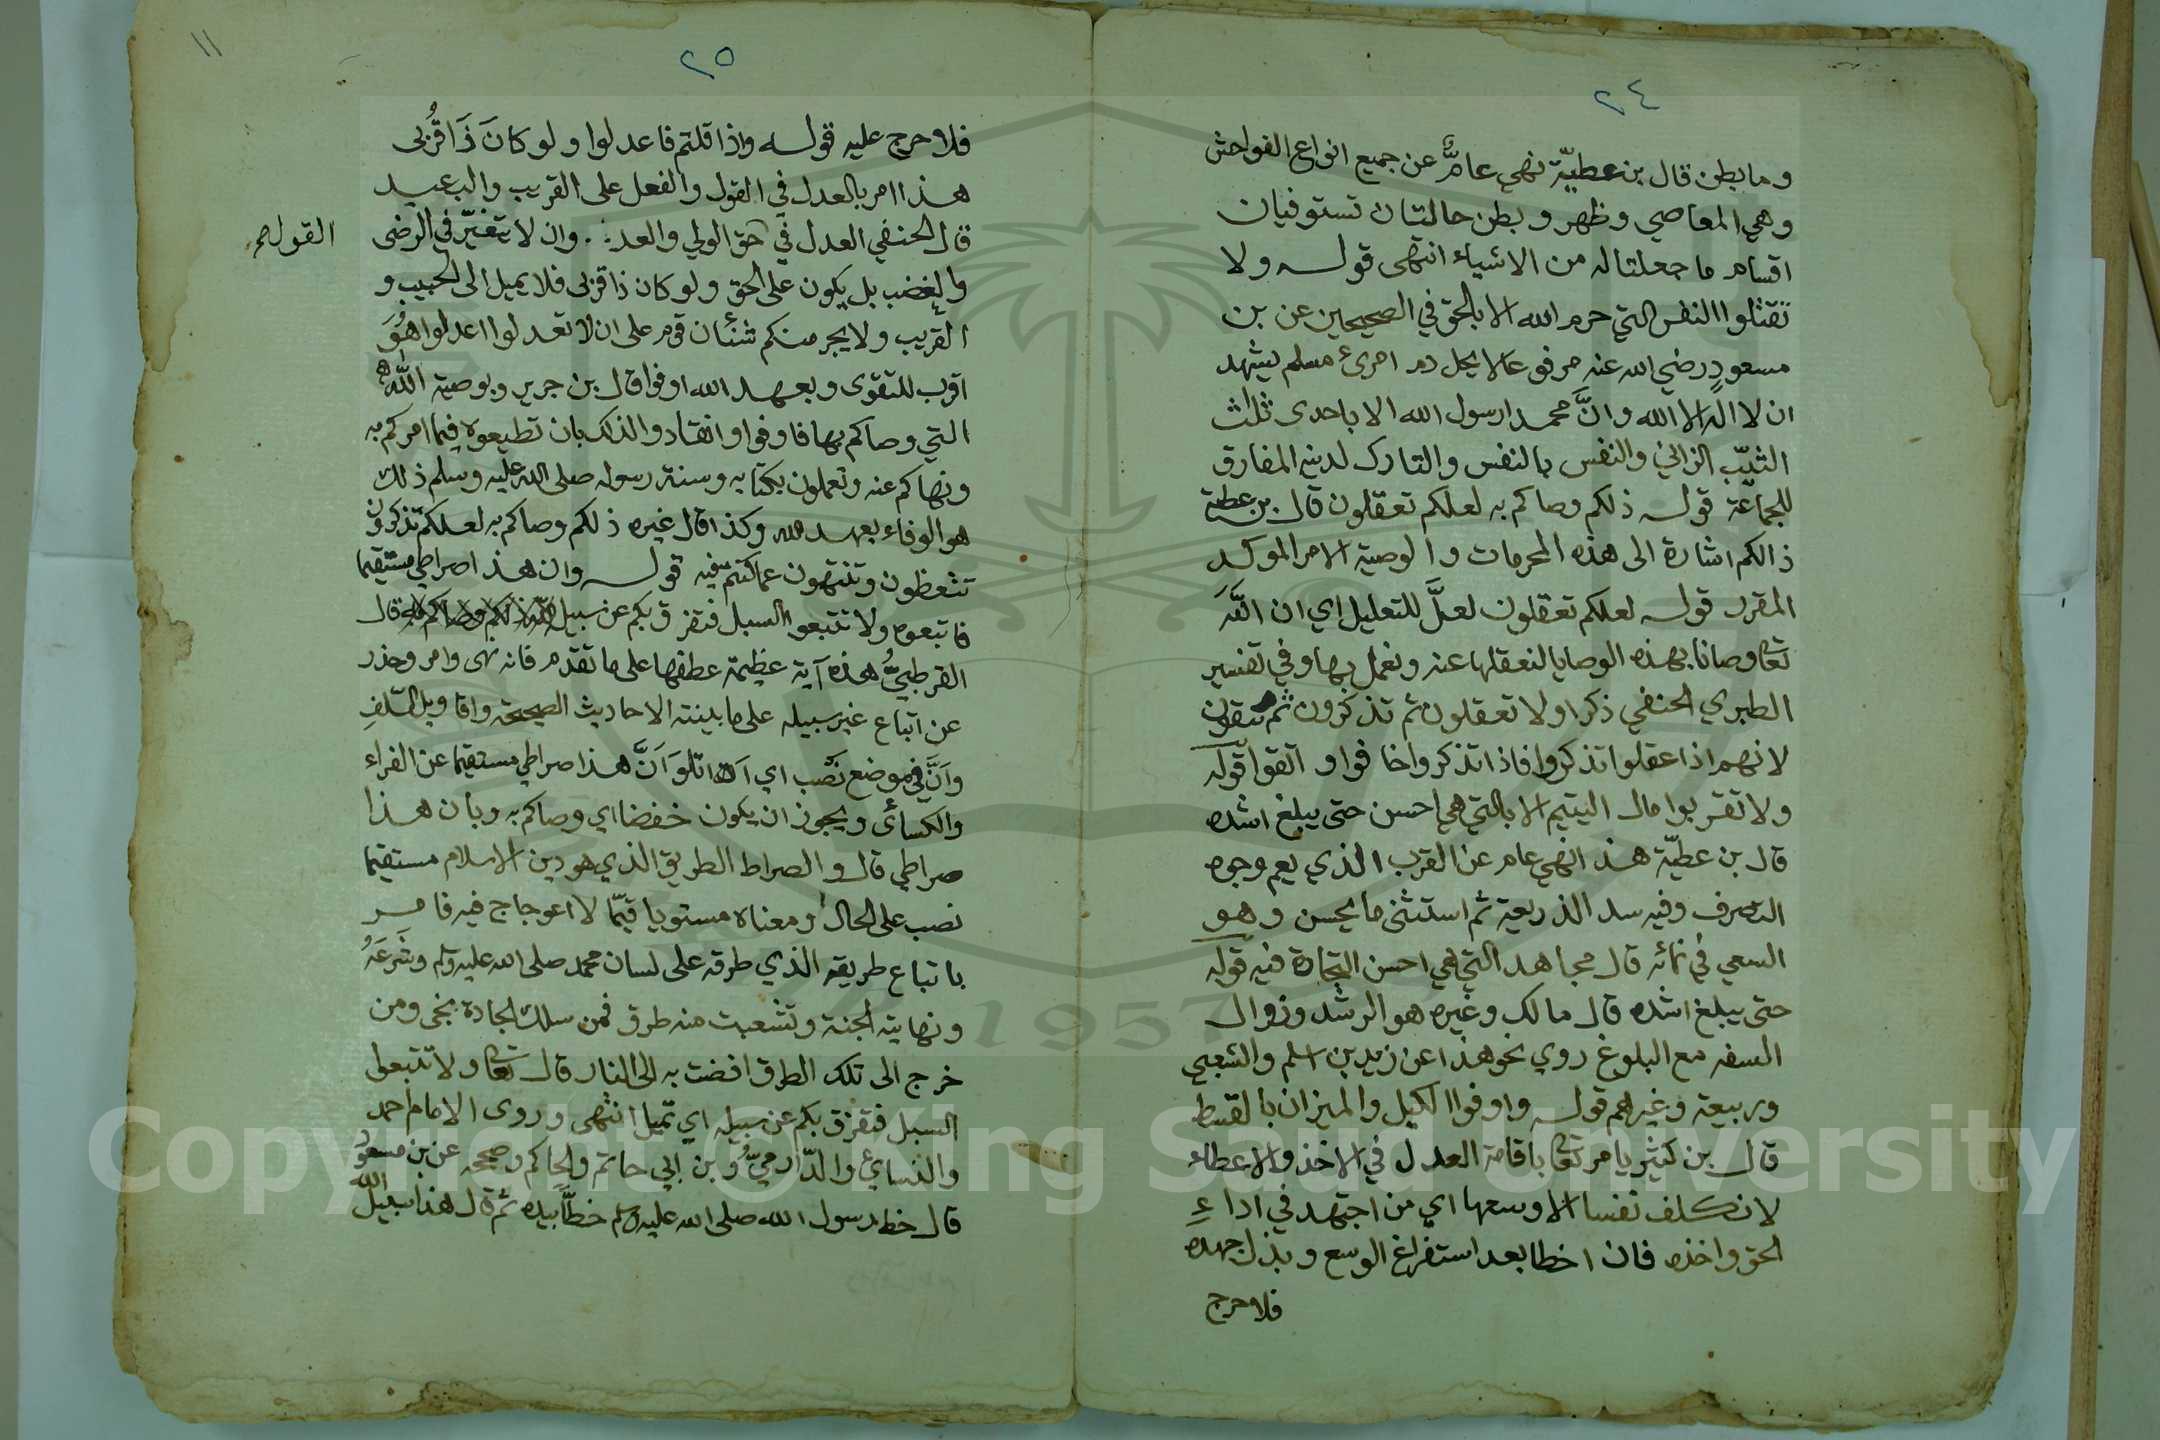 ٢٤
وما بطن قال بن عطيّة نهي عامٌّ عن جميع انواع الفواحش
وهي المعاصي وظهر وبطن حالتان تستوفيان
اقسام ما جعلتا له من الاشياء انتهى قوله ولا
تقتلوا النفس التي حرم الله الا بالحق في الصحيحين عن بن
مسعودٍ رضي الله عنه مرفوعا لا يحل دم امرئ مسلم يشهد
ان لا اله الا الله وانَّ محمدا رسول الله الا باحدى ثلاث
الثيّب الزاني والنفس بالنفس والتارك لدينه المفارق
للجماعة قوله ذلكم وصاكم به لعلكم تعقلون قال بن عطية
ذالكم اشارة الى هذه المحرمات والوصية الامر الموكد
المقرر قوله لعلكم تعقلون لعلَّ للتعليل اي ان اللهَ
تعالى وصانا بهذه الوصايا لنعقلها عنه ونعمل بها وفي تفسير
الطبري الحنفي ذكر اولا تعقلون ثم تذكرون ثم تتقون
لانهم اذا عقلوا تذكروا فاذا تذكروا خافوا واتقوا قوله
ولا تقربوا مال اليتيم الا بالتي هي احسن حتى يبلغ اشده
قال بن عطيّة هذا نهي عام عن القرب الذي يعم وجوه
التصرف وفيه سد الذريعة ثم استثنى ما يحسن وهو
السعي في نمائه قال مجاهد التي هي احسن التجارة فيه قوله
حتى يبلغ اشده قال مالك وغيره هو الرشد وزوال
السفه مع البلوغ روي نحو هذا عن زيد بن اسلم والشعبي
وربيعة وغيرهم قوله واوفوا الكيل والميزان بالقسط
قال بن كثير يامر تعالى باقامة العدل في الاخذ والاعطاء
لا نكلف نفسا الا وسعها اي من اجتهد في اداءِ
الحق واخذه فان اخطا بعد استفراغ الوسع وبذل جهده
فلا حرج
١١
٢٥
فلا حرج عليه قوله واذا قلتم فاعدلوا ولو كانَ ذَا قُربى
هذا امر بالعدل في القول والفعل على القريب والبعيد
قال الحنفي العدل في حق الولي والعد وان لا يتغيّر في الرضى
والغضب بل يكون على الحق ولو كان ذا قربى فلا يميل الى الحبيب و
القريب ولا يجرمنكم شنئان قوم على ان لا تعدلوا اعدلوا هُوَ
اقرب للتقوى وبعهد الله اوفوا قال بن جرير وبوصية اللَّه
التي وصاكم بها فاوفوا وانقادوا لذلك بان تطيعوه فيما امركم به
ونهاكم عنه وتعملون بكتابه وسنة رسوله صلى الله عليه وسلم ذلك
هو الوفاء بعهد الله وكذا قال غيره ذلكم وصاكم به لعلكم تذكرون
تتعظون وتنتهون عما كنتم فيه قوله وان هذا صراطي مستقيما
فاتبعوه ولا تتبعوا السبل فتفرق بكم عن سبيل قال
القرطبيُّ هذه آية عظيمة عطفها على ما تقدم فانه نهى وامر وحذر
عن اتباع غير سبيله على ما بينته الاحاديث الصحيحة واقاويل السّلفِ
وَانَّ في موضع نَصْب اي اتلوَ انَّ هذا صراطي مستقيما عن الفراء
والكسائى ويجوز ان يكون خفضا اي وصاكم به وبان هذا
صراطي قال والصراط الطريق الذي هو دين الاسلام مستقيما
نصب على الحال ومعناه مستويا قيّما لا اعوجاج فيه فامر
باتباع طريقه الذي طرقه على لسان محمد صلى الله عليه وسلم وشَرَعَهُ
ونهايته الجنة وتشعبت منه طرق فمن سلك الجادة نجى ومن
خرج الى تلك الطرق افضت به الى النار قال تعالى ولا تتبعوا
السبل فتفرق بكم عن سبيله اي تميل انتهى وروى الامام احمد
والنساي والدّارميُّ وبن ابي حاتم والحاكم وصححه عن بن مسعودُ
قال خط رسول الله صلى الله عليه وسلم خطًّا بيده ثم قال هذا سبيل الله
Copyright © King Saud University
1957